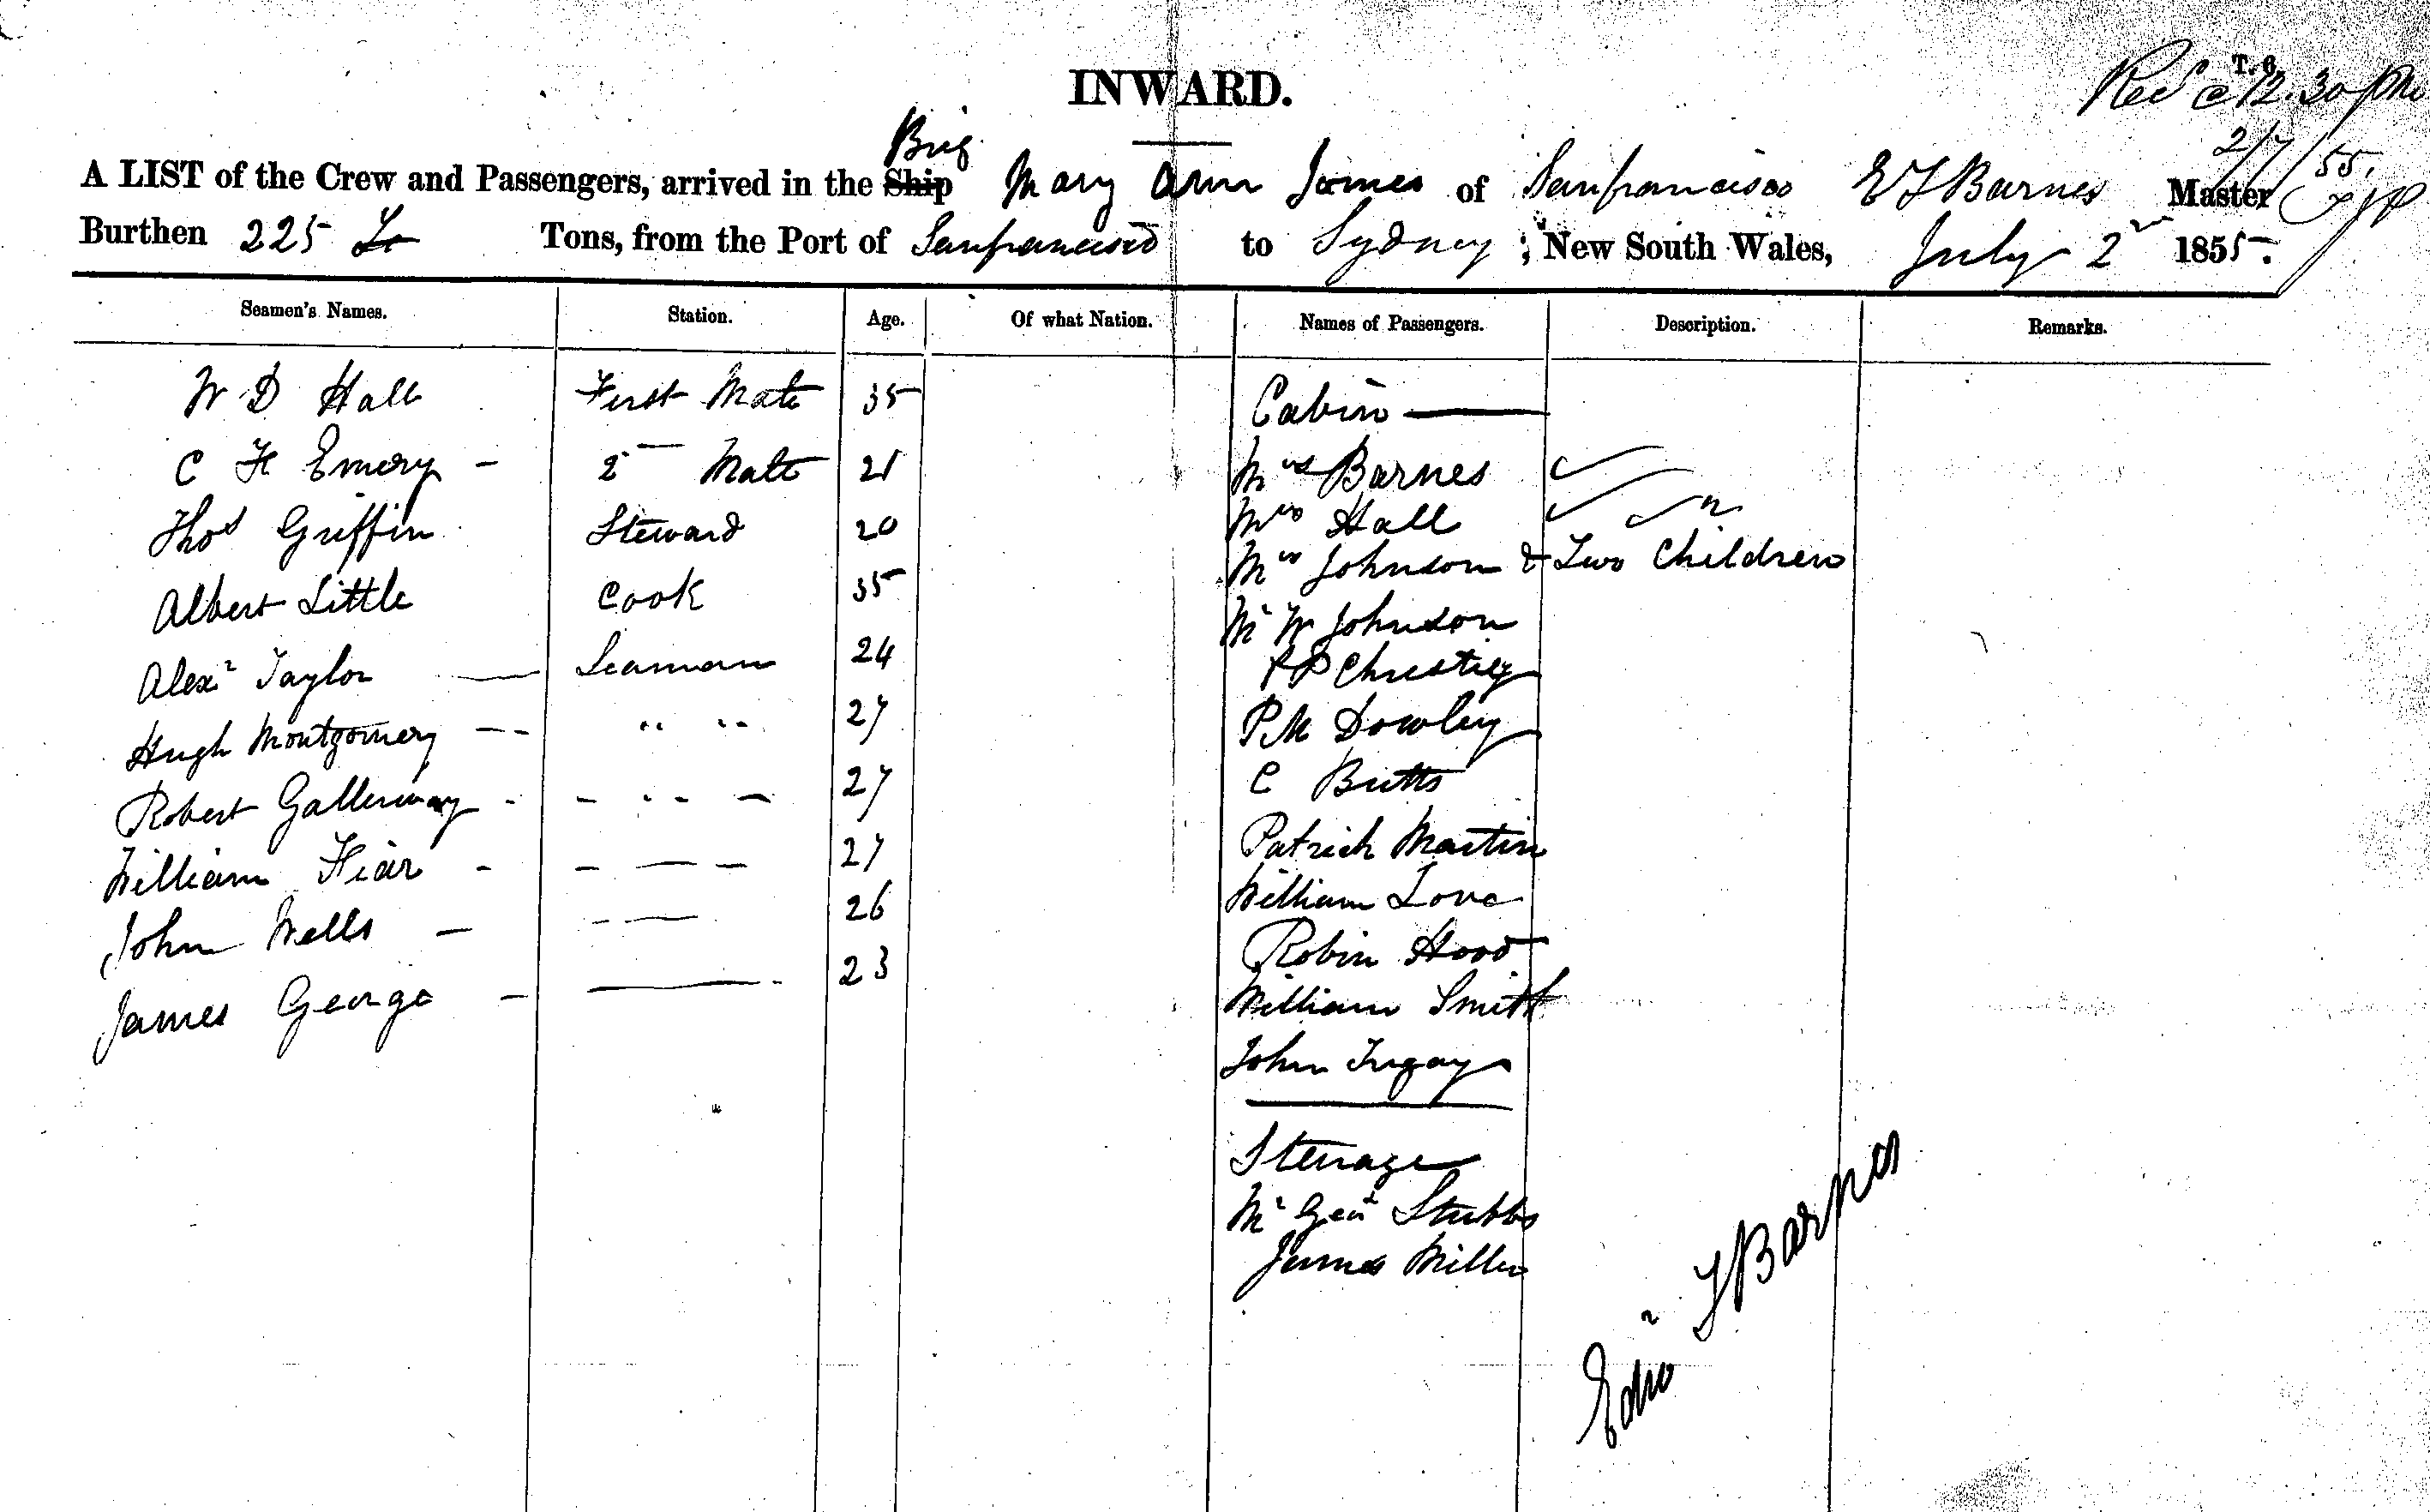 INWARD.
T. 6
Recd @ 12.30 pm
2/7/55.
Brig
A LIST of the Crew and Passengers, arrived in the Ship Mary Ann Jones of Sanfrancisco E T Barnes Master
Burthen 225 Tons, from the Port of Sanfrancisco to Sydney, New South Wales, July 2 1855.
Seamen's Names. Station. Age. Of what Nation. Names of Passengers. Description. Remarks.
W D Hall First Mate 35 Cabin —
C H Emery - 2 Mate 21 Mrs Barnes
Thos Griffin Steward 20 Mrs Hall
Albert Little Cook 35 Mrs Johnson & Two Children
Alexr Taylor — Seaman 24 Mr W Johnson
Hugh Montgomery -- " " 27 Christiey
Robert Galleway - - " - 27 P M Dowley
William - - — - 27 C Butts
John Wells - - — 26 Patrick Martin
James George - — 23 William Love
Robin Hood
William Smith
John Ingay
Steerage
Mr Geo Stubbs
James Miller
Edwd T Barnes